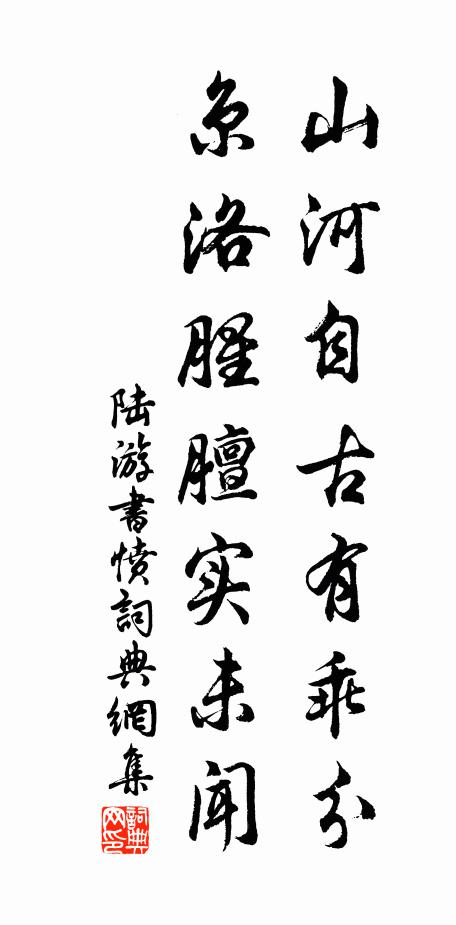 山河自古有乖分
京洛腥膻实未闻
陆游書愤詞典網集
詞典网印